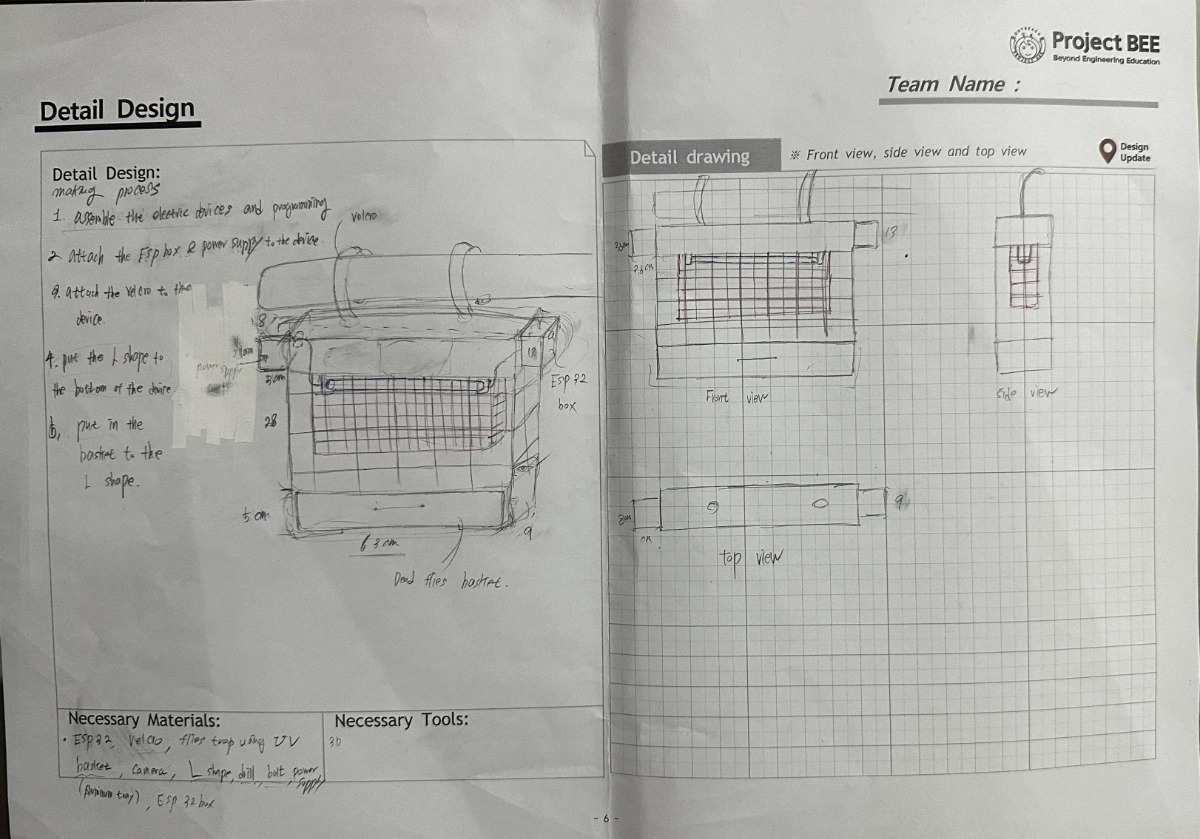 Project BEE
Beyond Engineering Education
Team Name :
Detail Design
Detail Design:
making process
1. assemble the electric devices and programming
2. attach the Esp box & power supply to the device.
3. attach the velcro to the
device.
4. put the L shape to
the bottom of the device
5, put in the
basket to the
L shape.
velcro
8
power supply
5cm
28
Esp 32
box
5 cm
63 cm
9
Dead flies basket.
Necessary Materials:
• Esp32, Velcro, flies trap using UV
basket, camera, L shape, drill, bolt, power
supply
(Aluminum tray), Esp 32 box
Necessary Tools:
3D
Detail drawing
※ Front view, side view and top view
Design
Update
13
Front view
side view
9
top view
- 6 -